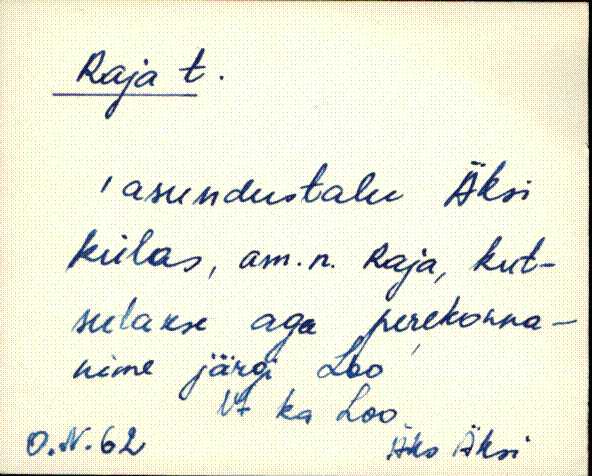 Raja t.
'asundustalu Äksi
külas, am.n. Raja, kut-
sutakse aga perekonna-
nime järgi Loo
Vt ka Loo
O.N. 62
Äks Äksi